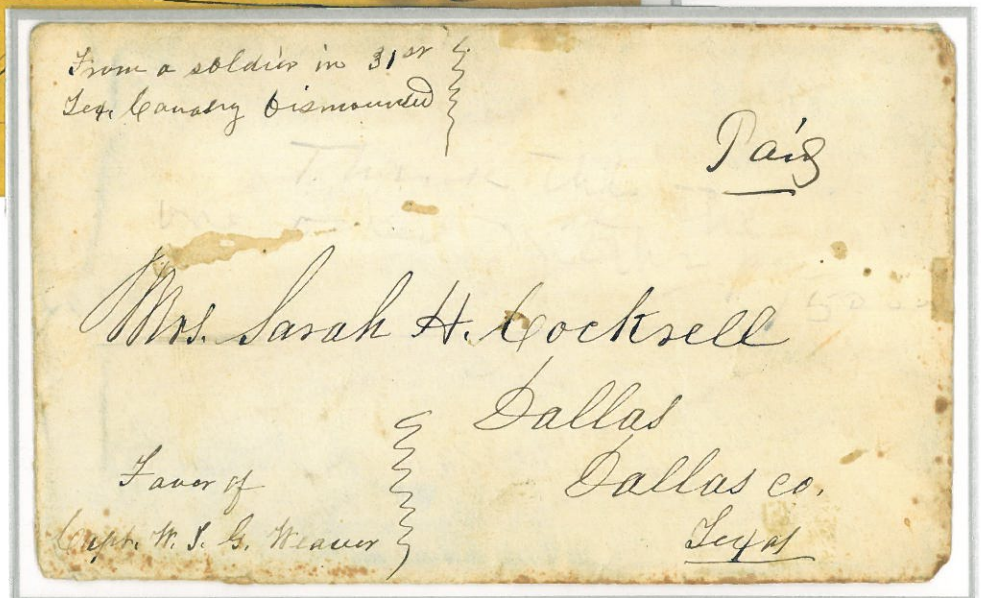 From a soldier in 31st
Tex. Cavalry Dismounted
Paid
Mrs. Sarah H. Cockrell
Dallas
Dallas co.
Texas
Favor of
Capt. W. S. G. Weaver